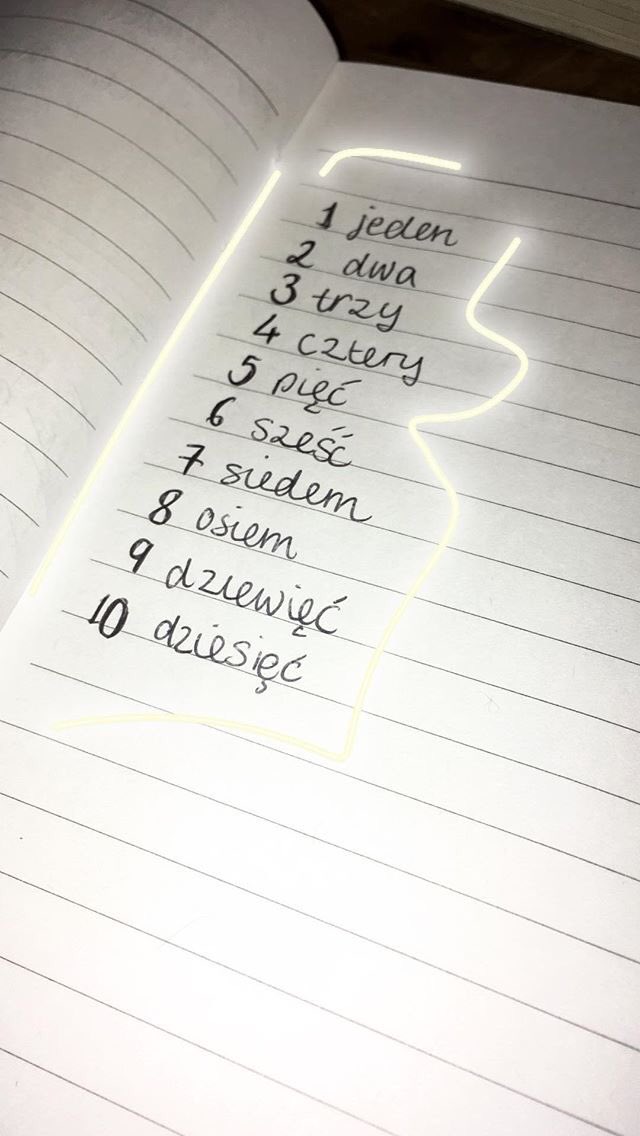 1 jeden
2 dwa
3 trzy
4 cztery
5 pięć
6 sześć
7 siedem
8 osiem
9 dziewięć
10 dziesięć